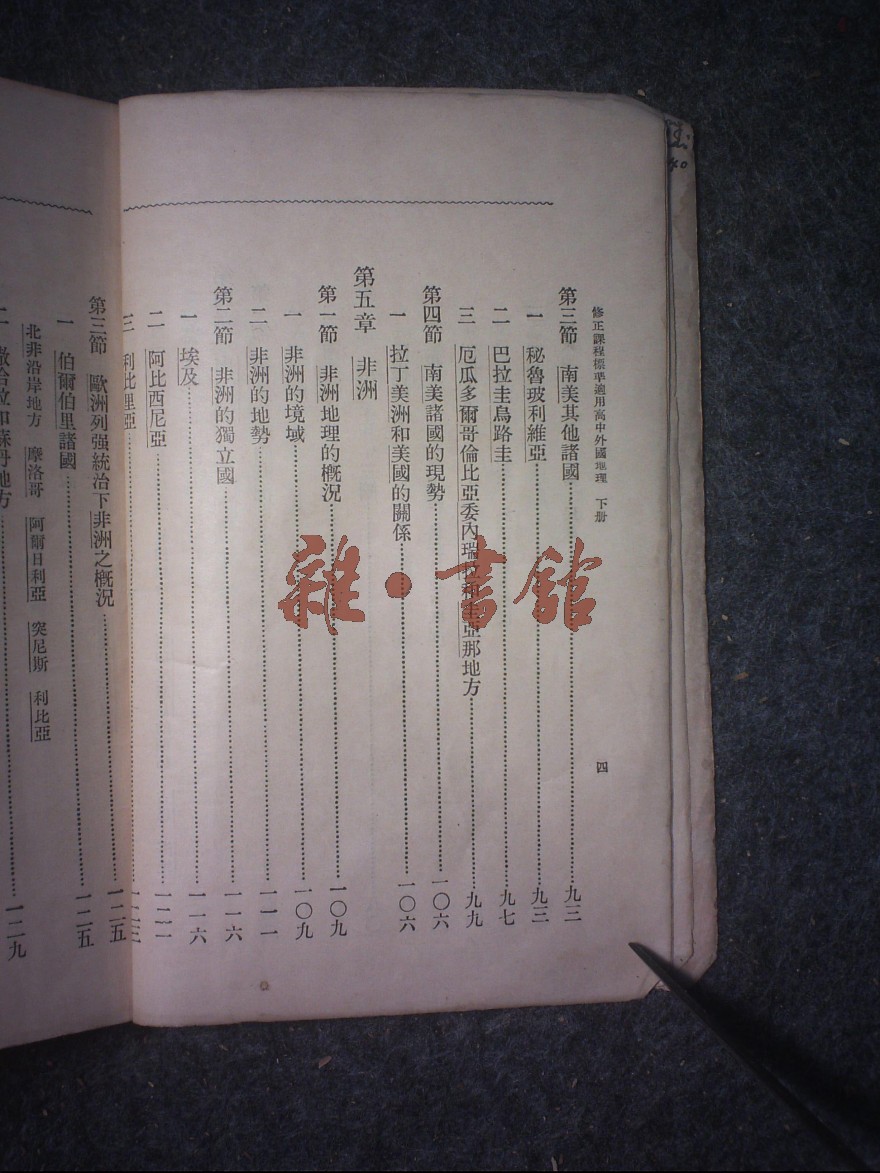 修正課程標準適用高中外國地理 下册
四
第三節 南美其他諸國……九三
一 秘魯玻利維亞……九三
二 巴拉圭烏路圭……九七
三 厄瓜多爾哥倫比亞委內瑞拉和圭亞那地方……九九
第四節 南美諸國的現勢……一〇六
一 拉丁美洲和美國的關係……一〇六
第五章 非洲
第一節 非洲地理的概況……一〇九
一 非洲的境域……一〇九
二 非洲的地勢……一一一
第二節 非洲的獨立國……一一六
一 埃及……一一六
二 阿比西尼亞……一二一
三 利比里亞……一二三
第三節 歐洲列强統治下非洲之概況……一二五
一 伯爾伯里諸國……一二五
北非沿岸地方 摩洛哥 阿爾日利亞 突尼斯 利比亞
二 撒哈拉和蘇丹地方……一二九
雜·書館